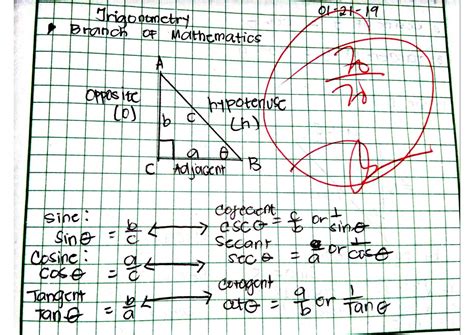 Trigonometry
01-21-19
Branch of Mathematics
A
opposite
(o)
b
c
hypotenuse
(h)
C
a
θ
B
Adjacent
sine:
sin θ = b/c
cosecant
csc θ = c/b or 1/sin θ
cosine:
cos θ = a/c
secant
sec θ = c/a or 1/cos θ
Tangent
tan θ = b/a
cotangent
cot θ = a/b or 1/Tan θ